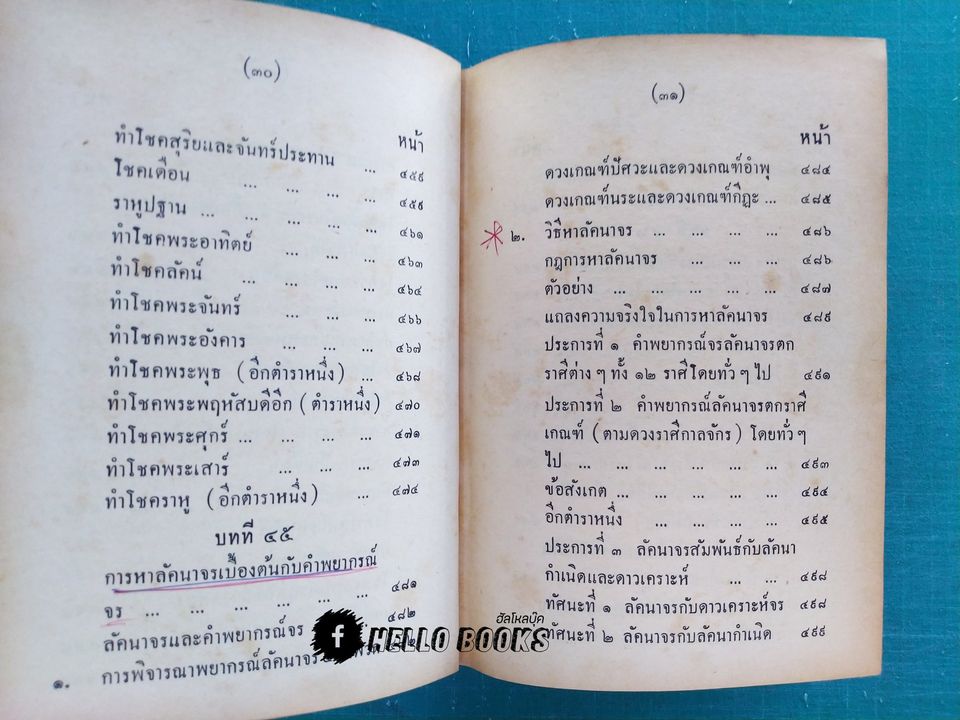 (๓๐)
หน้า
ทำโชคสุริยและจันทร์ประทาน ... ๔๕๙
โชคเดือน ... ... ... ... ๔๕๙
ราหูปฐาน ... ... ... ... ... ๔๖๑
ทำโชคพระอาทิตย์ ... ... ... ๔๖๓
ทำโชคลัคน์ ... ... ... ... ๔๖๔
ทำโชคพระจันทร์ ... ... ... ๔๖๖
ทำโชคพระอังคาร ... ... ... ๔๖๗
ทำโชคพระพุธ (อีกตำราหนึ่ง) ... ๔๖๘
ทำโชคพระพฤหัสบดีอีก (ตำราหนึ่ง) ๔๗๐
ทำโชคพระศุกร์ ... ... ... ... ๔๗๑
ทำโชคพระเสาร์ ... ... ... ๔๗๓
ทำโชคราหู (อีกตำราหนึ่ง) ... ๔๗๔
บทที่ ๔๕
การหาลัคนาจรเบื้องต้นกับคำพยากรณ์
จร ... ... ... ... ... ... ๔๘๑
ลัคนาจรและคำพยากรณ์จร ๔๘๒
๑. การพิจารณาพยากรณ์ลัคนาจร
(๓๑)
หน้า
ดวงเกณฑ์ปัศวะและดวงเกณฑ์อำพุ ๔๘๔
ดวงเกณฑ์นระและดวงเกณฑ์กีฏะ ... ๔๘๕
๒. วิธีหาลัคนาจร ... ... ... ... ๔๘๖
กฎการหาลัคนาจร ... ... ... ๔๘๖
ตัวอย่าง ... ... ... ... ... ๔๘๗
แถลงความจริงใจในการหาลัคนาจร ๔๘๙
ประการที่ ๑ คำพยากรณ์จรลัคนาจรตก
ราศีต่าง ๆ ทั้ง ๑๒ ราศีโดยทั่ว ๆ ไป ๔๙๑
ประการที่ ๒ คำพยากรณ์ลัคนาจรตกราศี
เกณฑ์ (ตามดวงราศีกาลจักร) โดยทั่ว ๆ
ไป ... ... ... ... ... ... ๔๙๓
ข้อสังเกต ... ... ... ... ... ๔๙๔
อีกตำราหนึ่ง ... ... ... ... ๔๙๕
ประการที่ ๓ ลัคนาจรสัมพันธ์กับลัคนา
กำเนิดและดาวเคราะห์ ... ... ๔๙๘
ทัศนะที่ ๑ ลัคนาจรกับดาวเคราะห์จร ๔๙๘
ทัศนะที่ ๒ ลัคนาจรกับลัคนากำเนิด ๔๙๙
ฮัลโหลบุ๊ค
f HELLO BOOKS